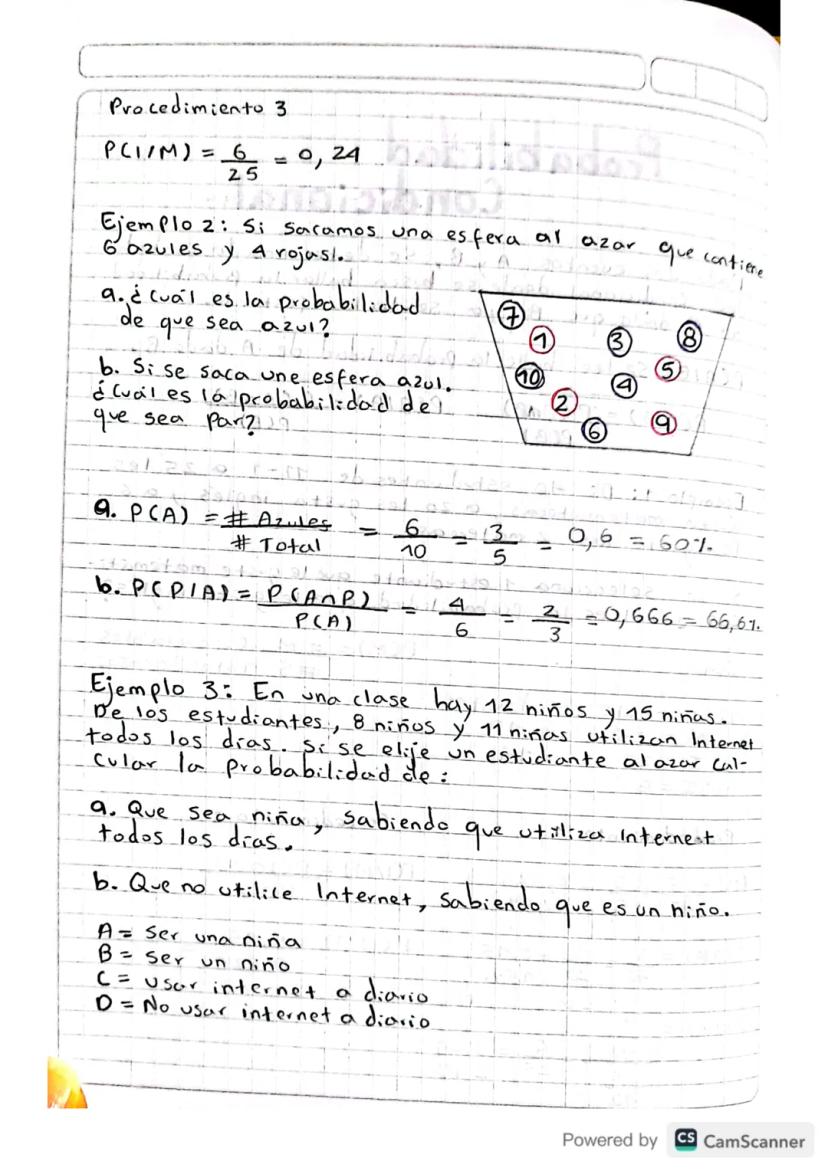 Procedimiento 3
P(I/M) = 6/25 = 0,24
Ejemplo 2: Si sacamos una esfera al azar que contiene
6 azules y 4 rojas.
a. ¿Cuál es la probabilidad
de que sea azul?
b. Si se saca une esfera azul.
¿Cuál es la probabilidad de
que sea Par?
7 1 3 8
10 4 5
2 6 9
a. P(A) = # Azules / # Total = 6/10 = 3/5 = 0,6 = 60%
b. P(P/A) = P(A∩P) / P(A) = 4/6 = 2/3 = 0,666 = 66,6%
Ejemplo 3: En una clase hay 12 niños y 15 niñas.
De los estudiantes, 8 niños y 11 niñas utilizan Internet
todos los días. Si se elije un estudiante al azar cal-
cular la probabilidad de:
a. Que sea niña, sabiendo que utiliza Internet
todos los días.
b. Que no utilice Internet, sabiendo que es un niño.
A = Ser una niña
B = Ser un niño
C = Usar internet a diario
D = No usar internet a diario
Powered by CS CamScanner